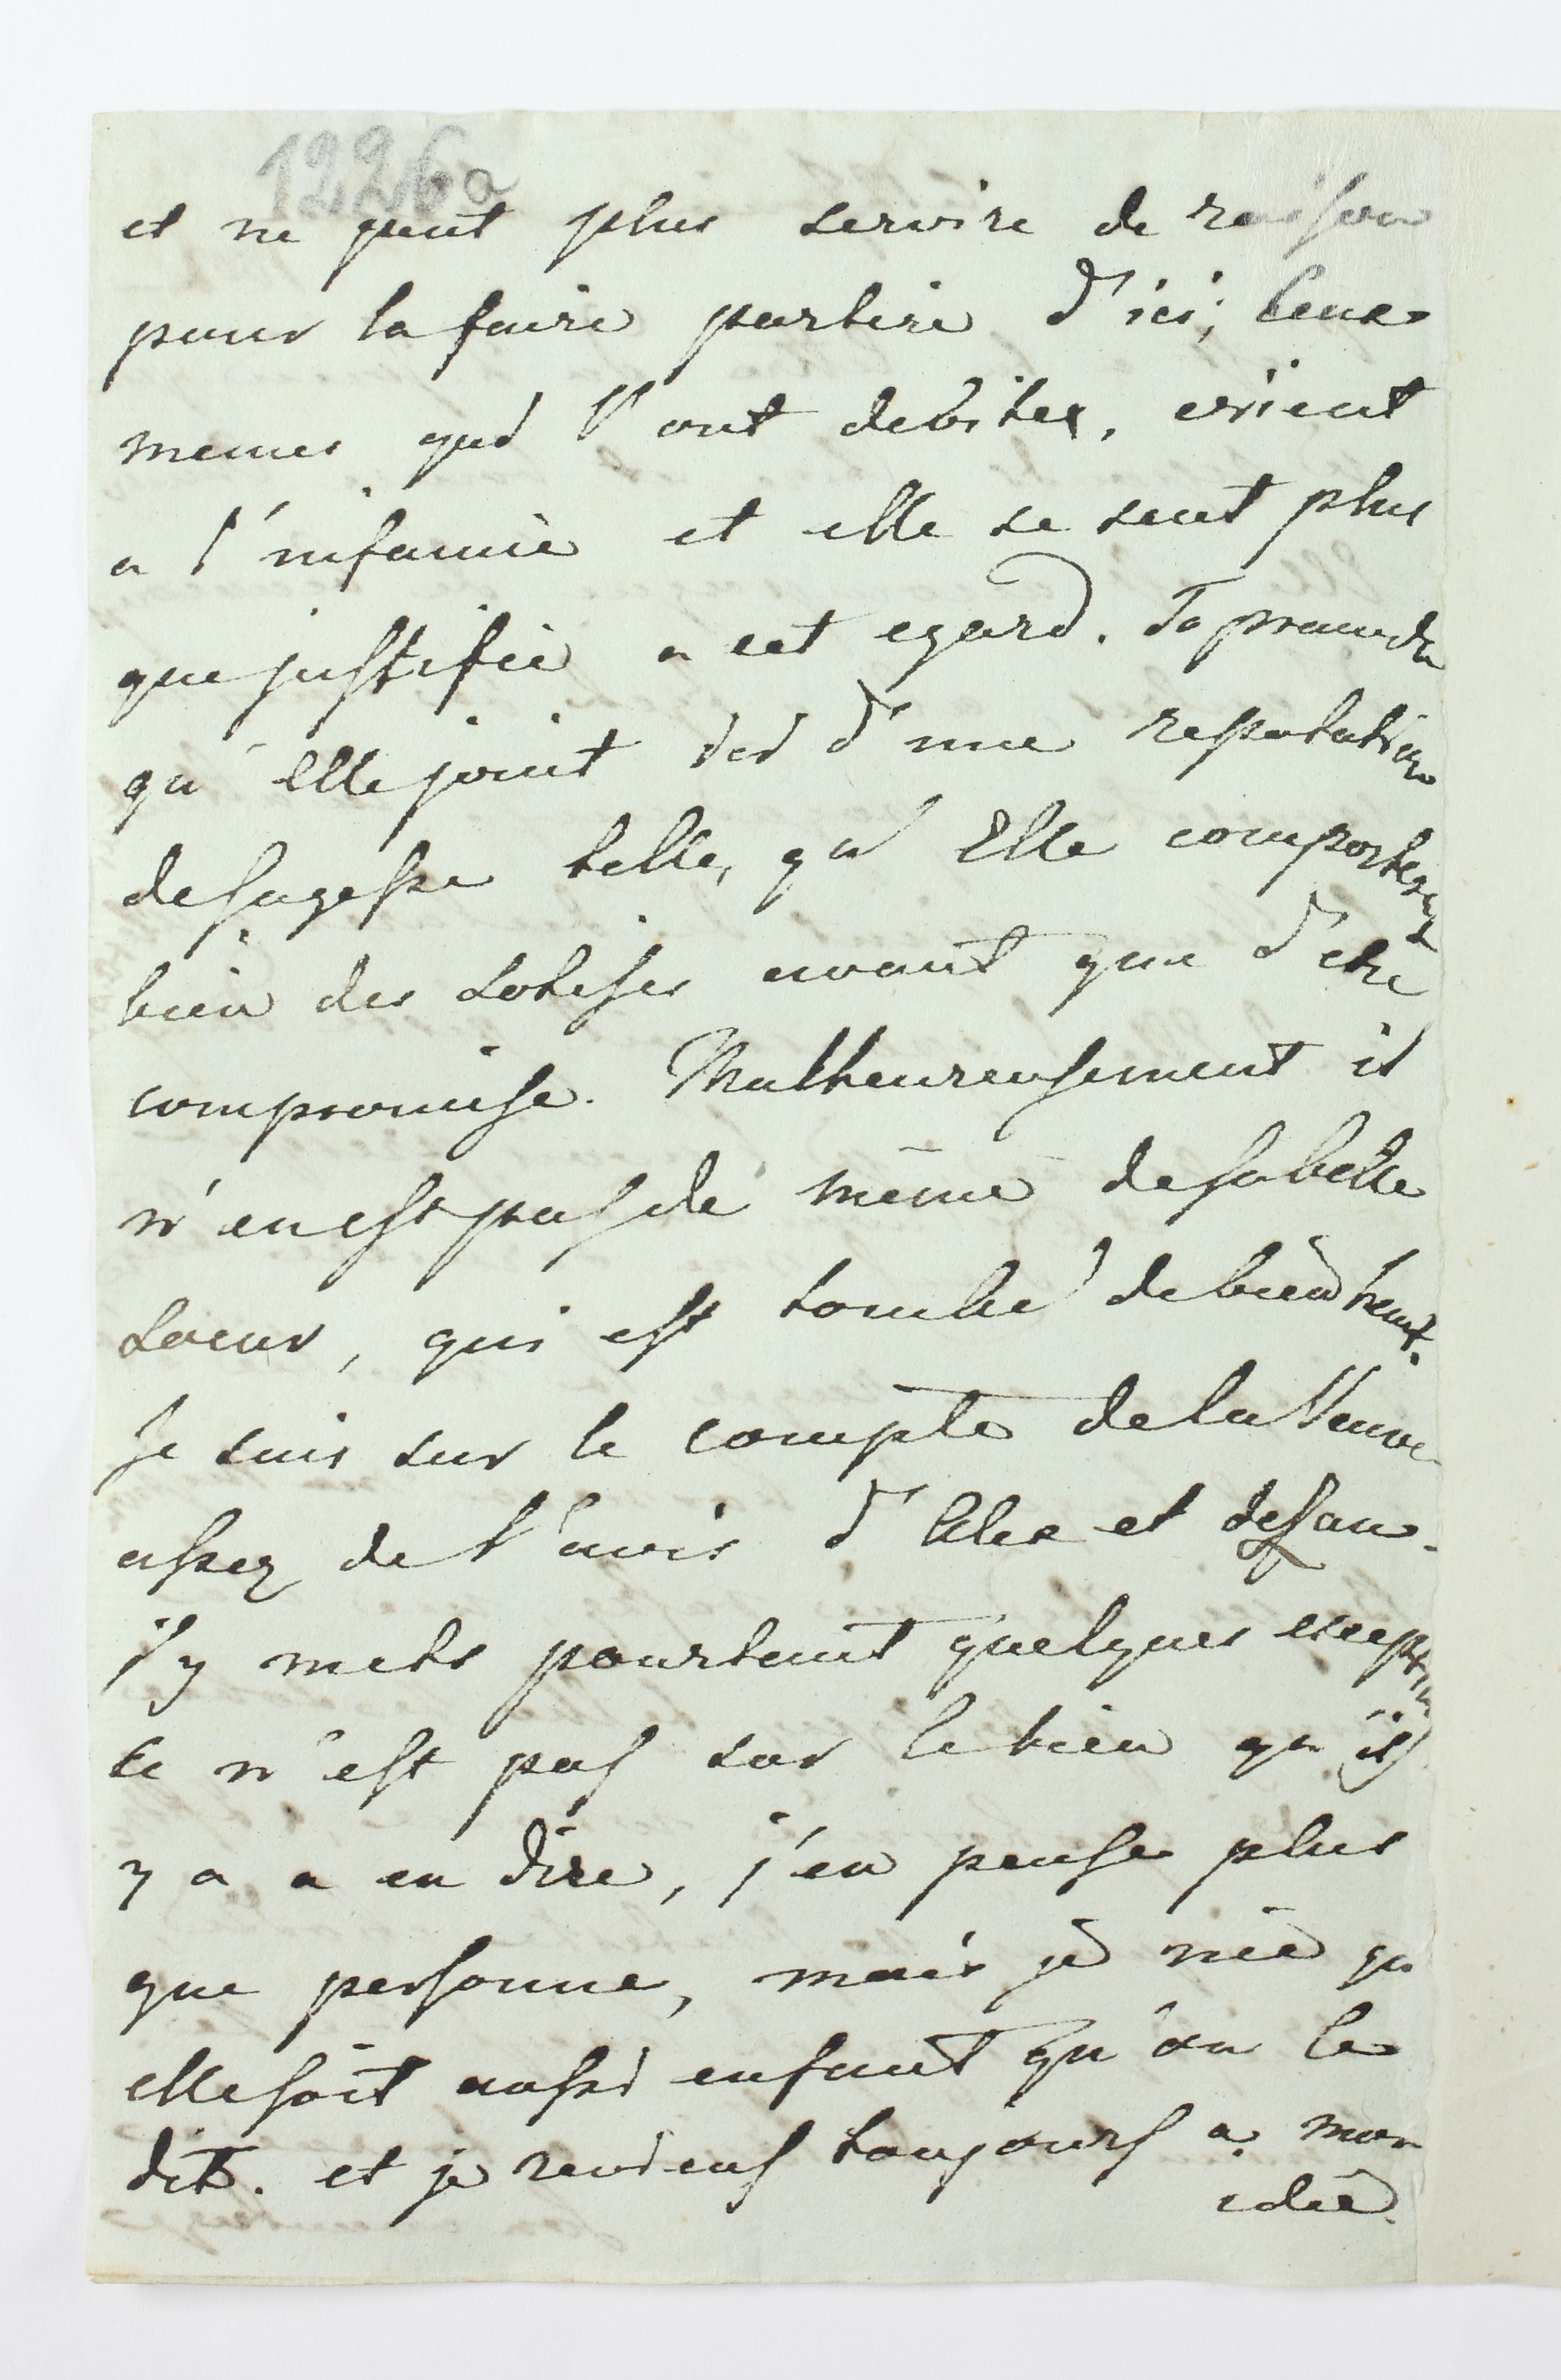 1226a
et ne peut plus servire de raison
pour la faire partire d'ici; Ceux
memes qui l'ont debitex, crient
a l'infamie et elle se sent plus
que justifie a cet egard.
qu'Elle jouit ici d'une reputation
de sagesse telle, qu'Elle comporterait
bien des sotises avant que d'etre
compromise. Malheureusement il
n'en est pas de même de sa belle
soeur, qui est tombé de bien haut.
Je suis sur le compte de la Veuve
assez de l'avis d'Alex et de Jean.
j'y mets pourtant quelques exceptions
Ce n'est pas sur le bien qu'il
y a a en dire, j'en pense plus
que personne, mais je nie qu
elle soit aussi enfant qu'on le
dit. et je reviens toujours a mon
idée.